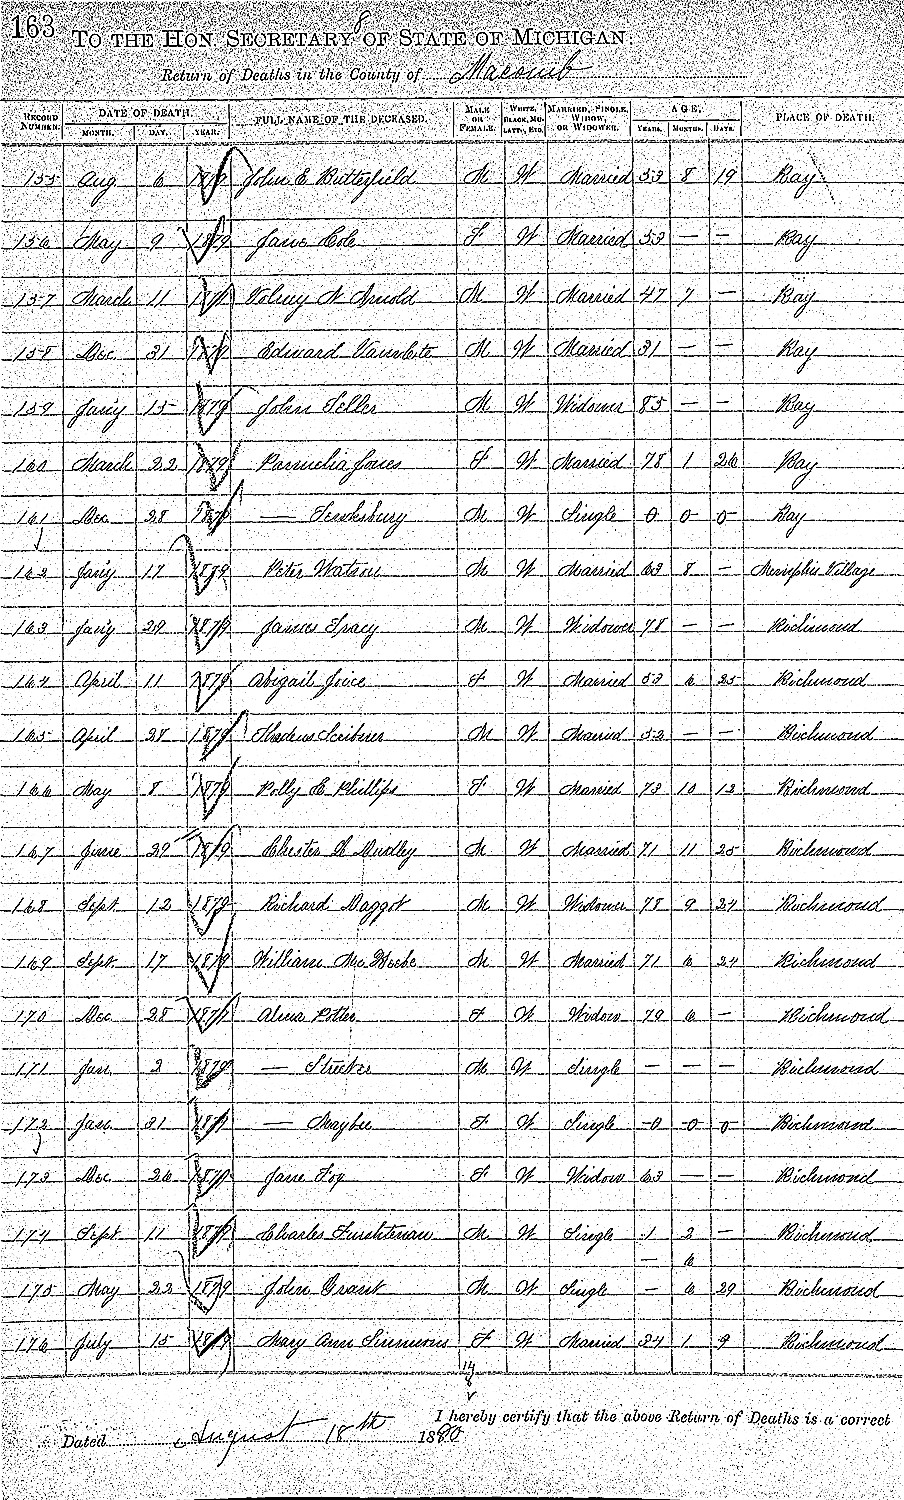 163
8
TO THE HON. SECRETARY OF STATE OF MICHIGAN:
Return of Deaths in the County of Macomb
RECORD NUMBER. DATE OF DEATH. MONTH. DAY. YEAR. FULL NAME OF THE DECEASED. MALE OR FEMALE. WHITE, BLACK, MULATTO, ETC. MARRIED, SINGLE, WIDOW, OR WIDOWER. AGE. YEARS. MONTHS. DAYS. PLACE OF DEATH.
155 Aug 6 1879 John E Butterfield M W Married 53 8 19 Ray
156 May 9 1879 Jane Cole F W Married 53 — — Ray
157 March 11 1879 Volney N Arnold M W Married 47 7 — Ray
158 Dec 31 1879 Edward M W Married 31 — — Ray
159 Jan'y 15 1879 John Teller M W Widower 85 — — Ray
160 March 22 1879 Parmelia Jones F W Married 78 1 26 Ray
161 Dec 28 1879 — Tewksbury M W Single 0 0 0 Ray
162 Jan'y 17 1879 Peter Watson M W Married 63 8 — Memphis Village
163 Jan'y 29 1879 James Tracy M W Widower 78 — — Richmond
164 April 11 1879 Abigail Joice F W Married 53 6 25 Richmond
165 April 27 1879 Scribner M W Married 52 — — Richmond
166 May 8 1879 Polly E Phillips F W Married 73 10 12 Richmond
167 June 29 1879 Chester Dudley M W Married 71 11 25 Richmond
168 Sept 12 1879 Richard Daggot M W Widower 78 9 24 Richmond
169 Sept 17 1879 William W Married 71 6 24 Richmond
170 Dec 28 1879 Potter F W Widow 79 6 — Richmond
171 Jan 2 1879 — Streeter M W Single — — — Richmond
172 Jan 31 1879 — Maybee F W Single 0 0 0 Richmond
173 Dec 26 1879 Jane Fox F W Widow 63 — — Richmond
174 Sept 11 1879 Charles M W Single 1 2 — Richmond
— 6
175 May 22 1879 John Grant M W Single — 6 29 Richmond
176 July 15 1879 Mary Ann Simmons F W Married 34 1 9 Richmond
14
8
I hereby certify that the above Return of Deaths is a correct
Dated August 18th 1880